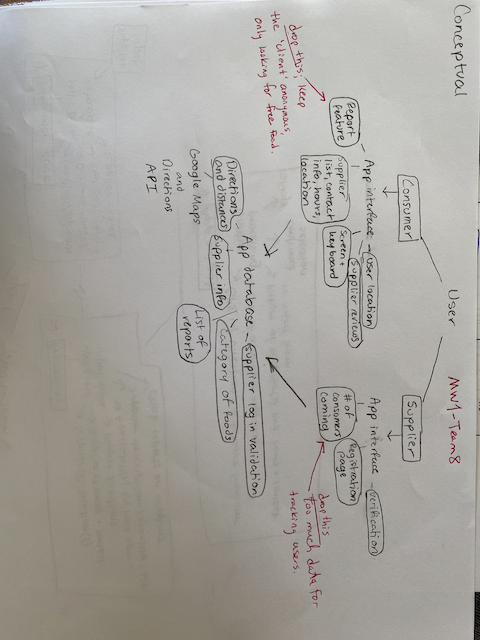 Conceptual
User
MW1-Team8
Consumer
Supplier
App interface
user location
Supplier reviews
Screen +
keyboard
Supplier
list, contact
info, hours,
location
Report
feature
drop this, keep
the 'client' anonymous,
only looking for free food.
App interface
verification
Registration
page
# of
consumers
coming
drop this
too much data for
tracking users.
App database
Supplier log in validation
Category of foods
List of
reports
Supplier info
Directions
and distances
Google Maps
and
Directions
API